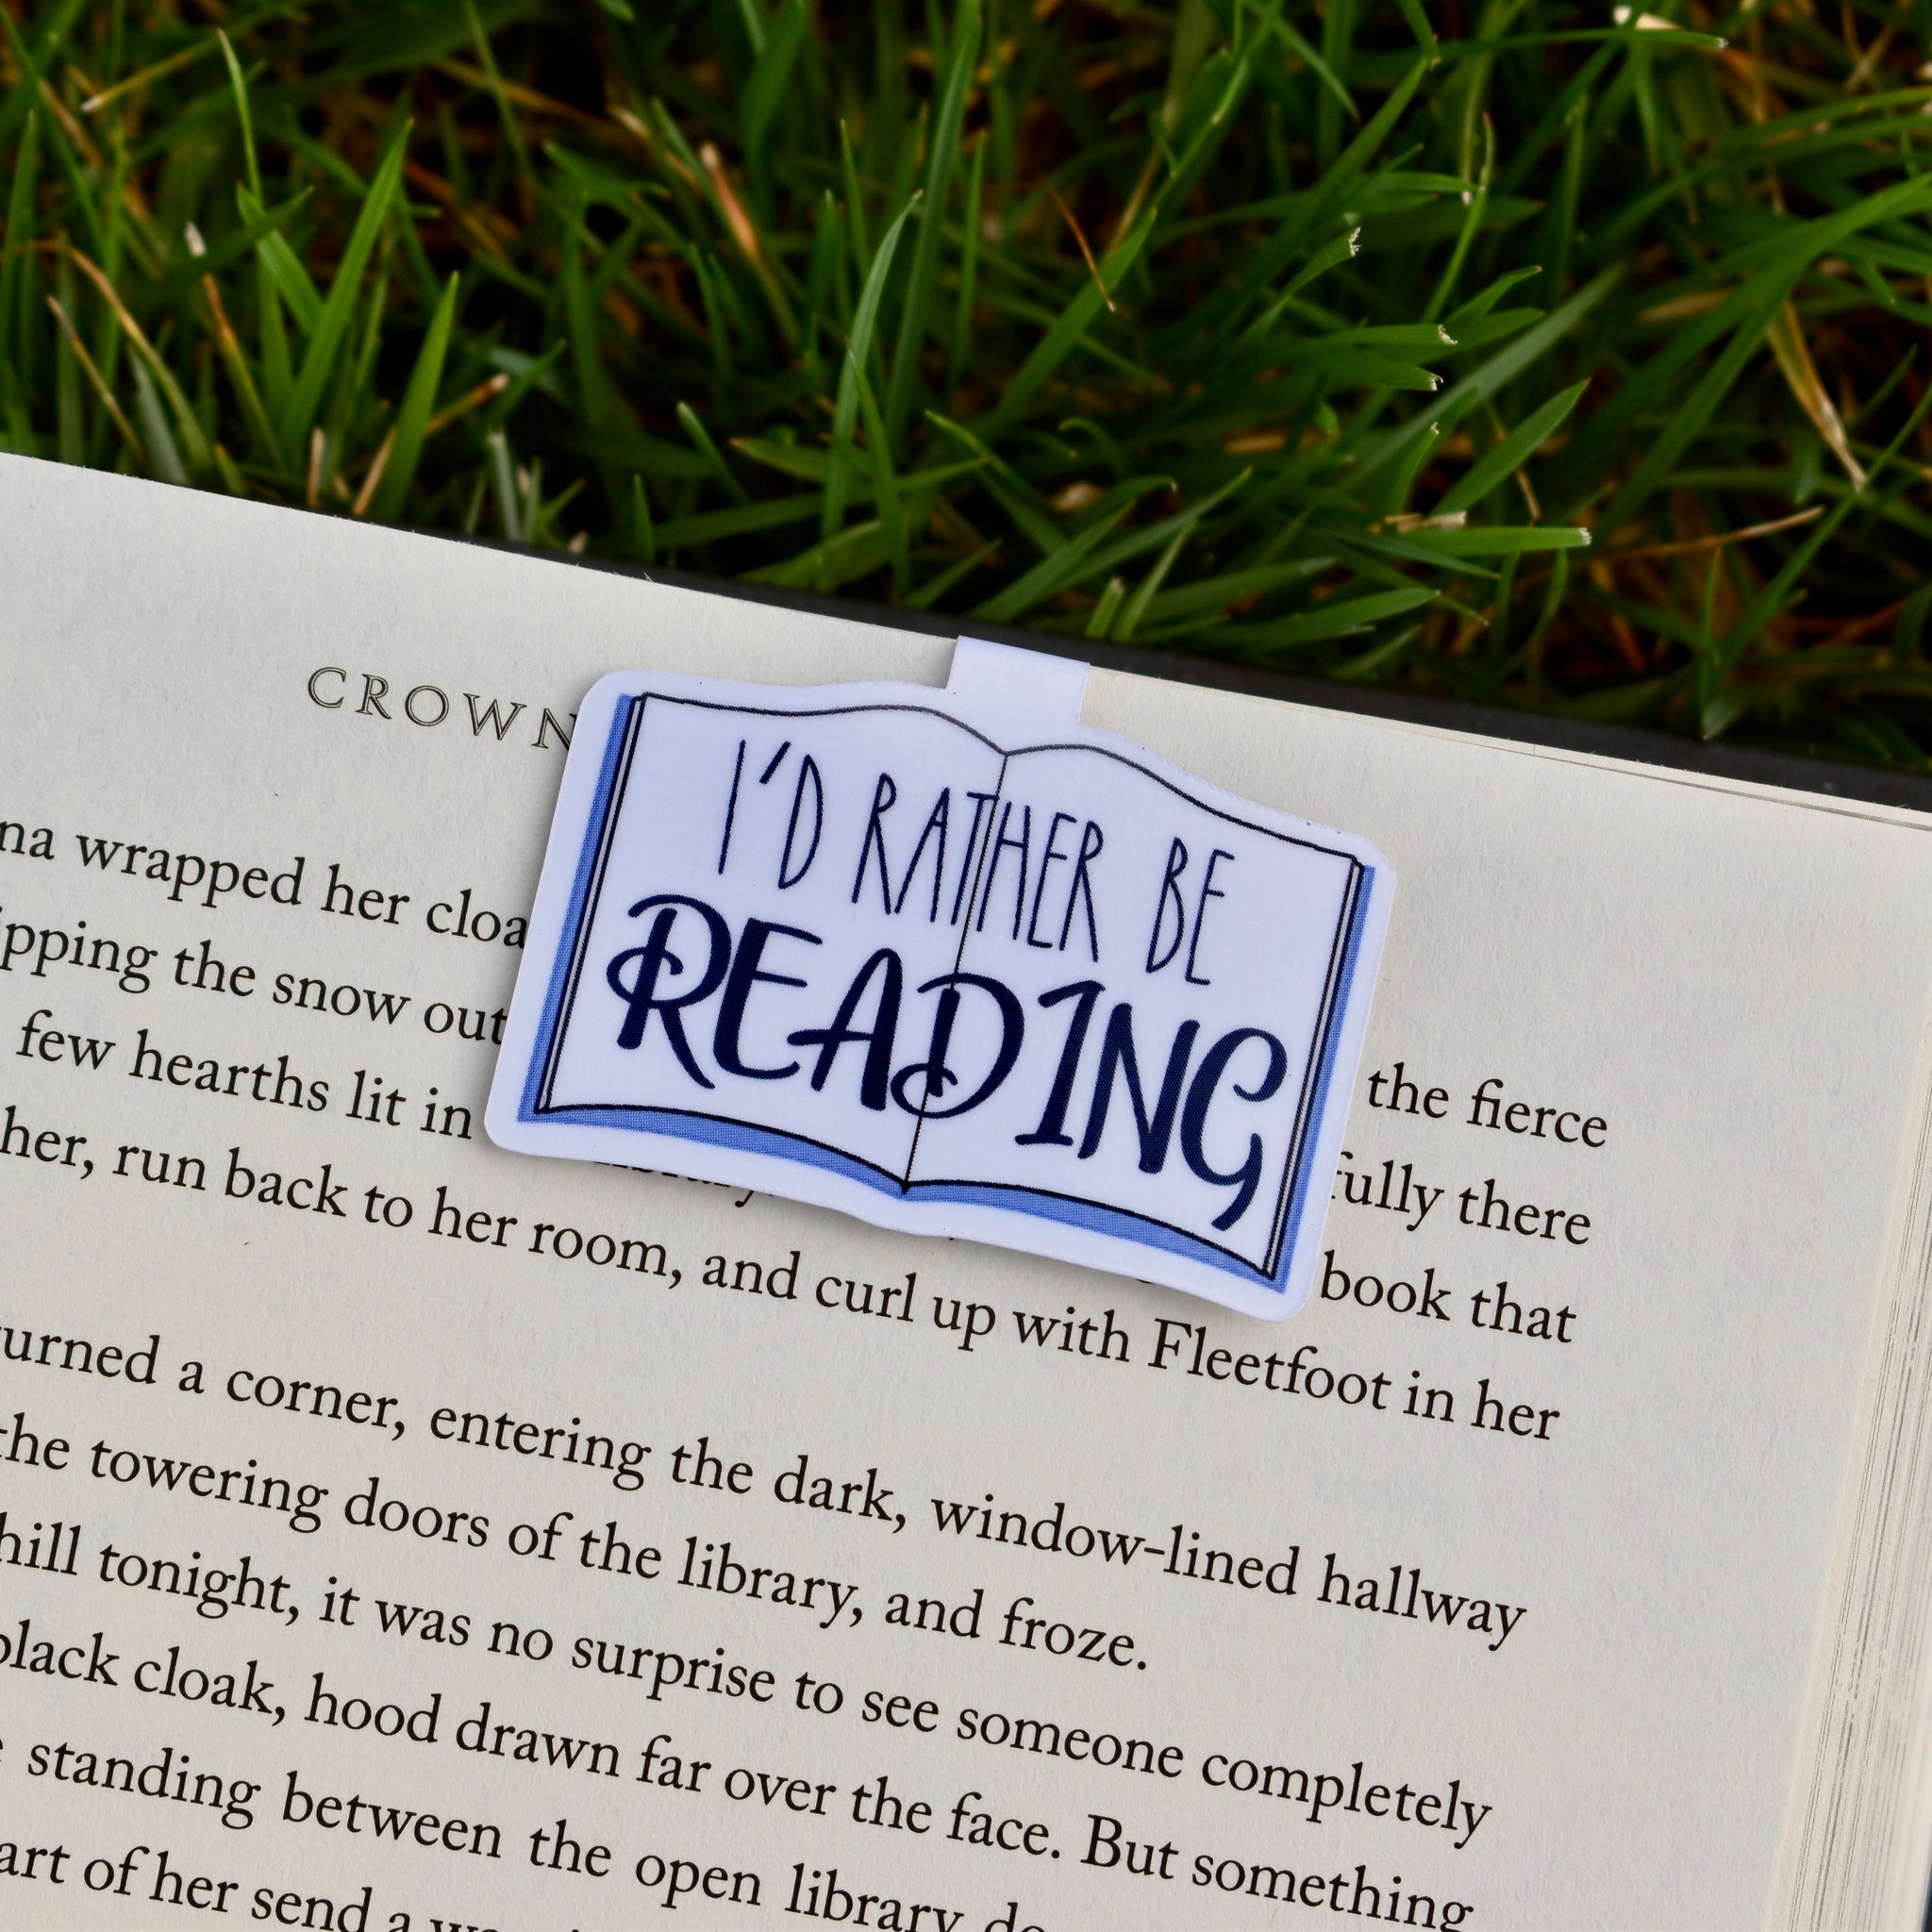 CROWN
I'D RATHER BE
READING
na wrapped her cloa
pping the snow out the fierce
few hearths lit in fully there
her, run back to her room, and curl up with Fleetfoot in her
book that
urned a corner, entering the dark, window-lined hallway
the towering doors of the library, and froze.
hill tonight, it was no surprise to see someone completely
black cloak, hood drawn far over the face. But something
standing between the open library
art of her send a